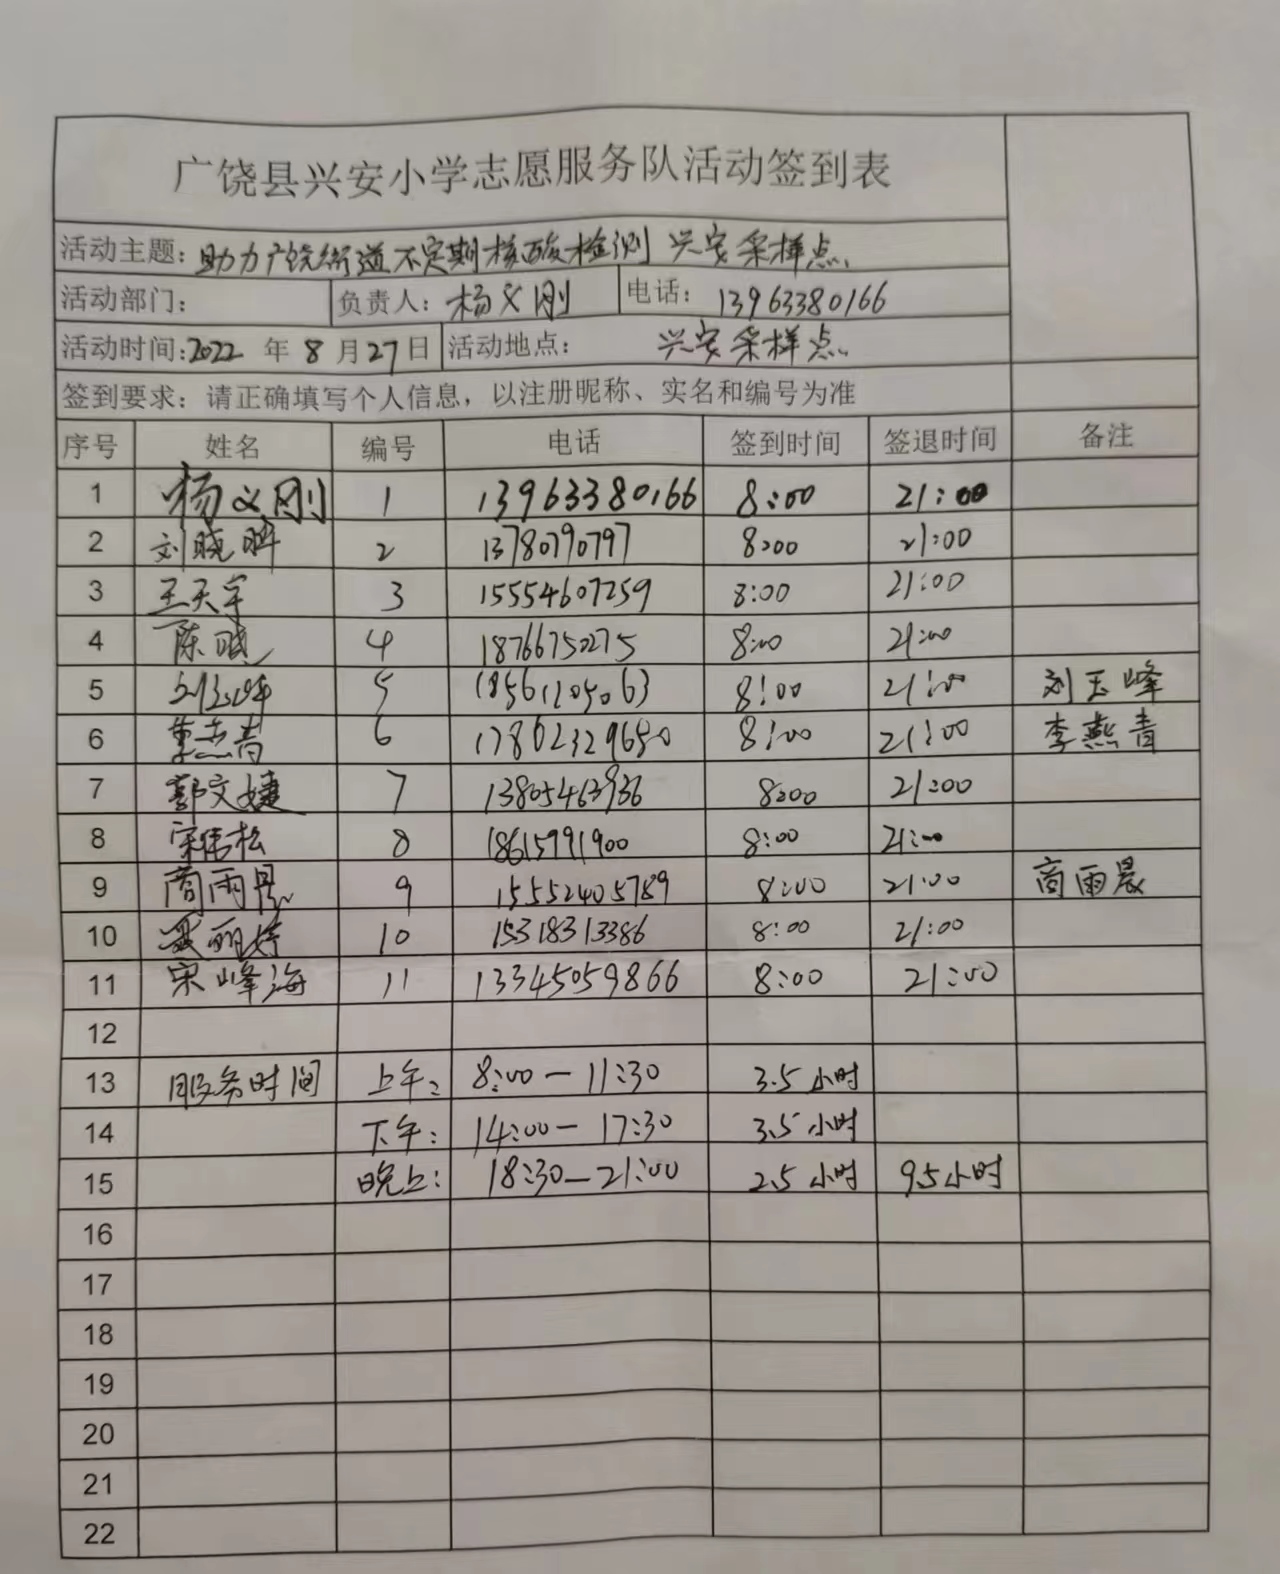 广饶县兴安小学志愿服务队活动签到表
活动主题: 助力广饶街道不定期核酸检测 兴安采样点
活动部门: 负责人: 杨义刚 电话: 13963380166
活动时间:2022 年 8 月 27 日 活动地点: 兴安采样点
签到要求: 请正确填写个人信息，以注册昵称、实名和编号为准
序号 姓名 编号 电话 签到时间 签退时间 备注
1 杨义刚 1 13963380166 8:00 21:00
2 刘晓晖 2 13780790797 8:00 21:00
3 王天宇 3 15554607259 8:00 21:00
4 陈晓 4 18766750275 8:00 21:00
5 刘玉峰 5 18561205063 8:00 21:00 刘玉峰
6 李燕青 6 17862329680 8:00 21:00 李燕青
7 郭文婕 7 13805463936 8:00 21:00
8 宋伟松 8 18615991900 8:00 21:00
9 商雨晨 9 15552405789 8:00 21:00 商雨晨
10 丽婷 10 15318313386 8:00 21:00
11 宋峰海 11 13345059866 8:00 21:00
12
13 服务时间 上午: 8:00—11:30 3.5小时
14 下午: 14:00—17:30 3.5小时
15 晚上: 18:30—21:00 2.5小时 9.5小时
16
17
18
19
20
21
22